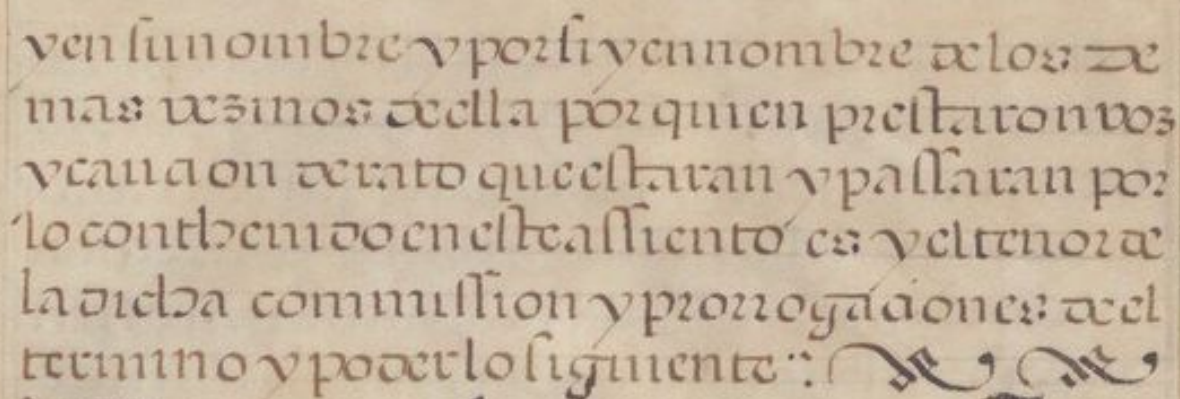 y en su nombre y por si y en nombre de los de
mas vezinos de ella por quien prestaron voz
y caucion de rato que estaran y passaran por
lo conthenido en este assiento es y el tenor de
la dicha commission y prorrogaciones de el
termino y poder lo siguiente